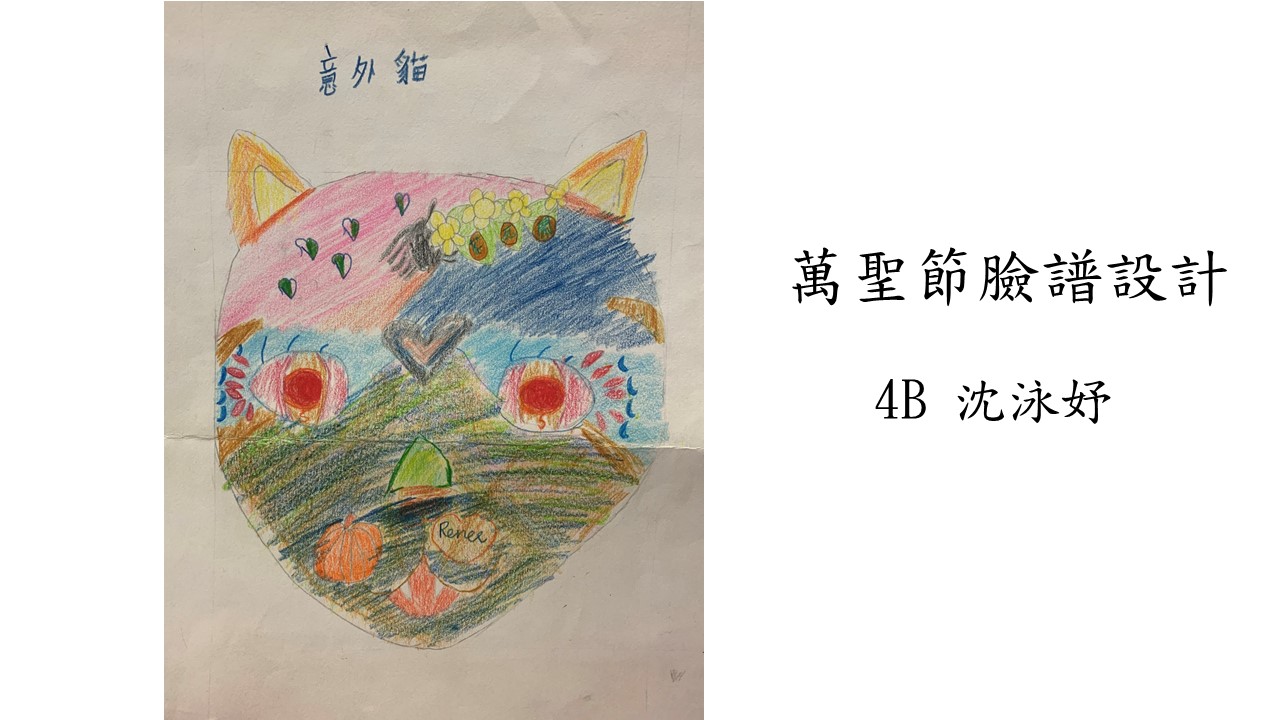 意外貓
Renee
萬聖節臉譜設計
4B 沈泳妤